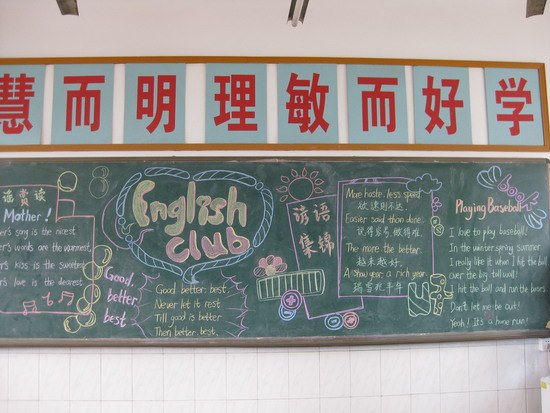 慧而明理敏而好学
谣赏读
Mother!
er's song is the nicest
er's words are the warmest
er's kiss is the sweetest
er's love is the dearest
Good,
better,
best
English
club
Good, better, best.
Never let it rest
Till good is better
Then better, best.
谚语
集锦
More haste, less speed.
欲速则不达
Easier said than done.
说得容易,做得难.
The more the better.
越来越好.
A snow year, a rich year.
瑞雪兆丰年
Playing Baseball
I love to play baseball.
In the winter, spring, summer.
I really like it when I hit the ball
over the big tall wall!
I hit the ball and run the bases.
Don't let me be out!
Yeah! It's a home run!